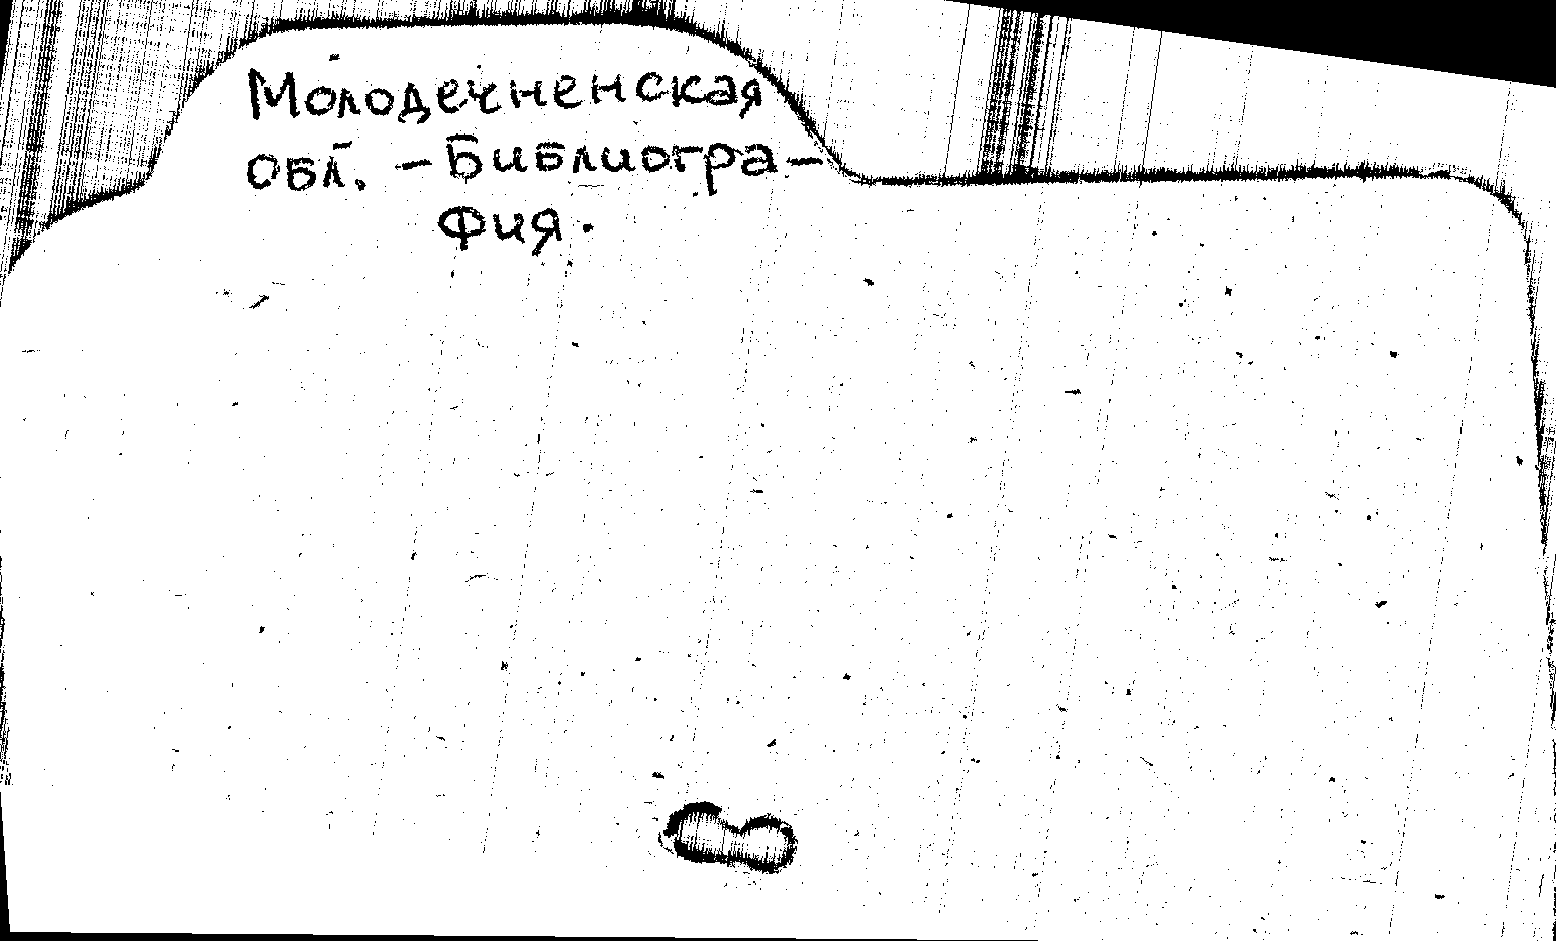 Молодечненская
обл. – Библиогра-
фия.